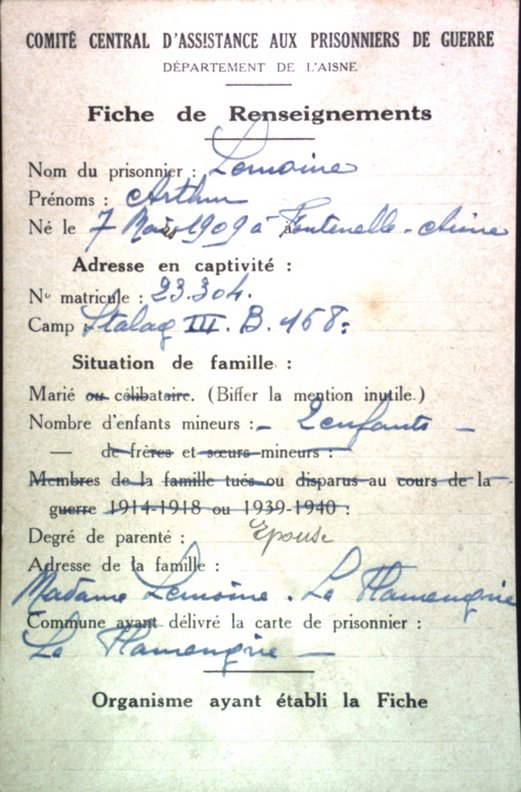 COMITÉ CENTRAL D'ASSISTANCE AUX PRISONNIERS DE GUERRE
DÉPARTEMENT DE L'AISNE
Fiche de Renseignements
Nom du prisonnier : Lemoine
Prénoms : Arthur
Né le 7 Mars 1909 à Fontenelle - Aisne
Adresse en captivité :
No matricule : 23.304.
Camp : Stalag III. B. 168.
Situation de famille :
Marié ou célibataire. (Biffer la mention inutile.)
Nombre d'enfants mineurs : - 2 enfants -
— de frères et sœurs mineurs :
Membres de la famille tués ou disparus au cours de la
guerre 1914-1918 ou 1939-1940 :
Degré de parenté : Epouse
Adresse de la famille :
Madame Lemoine. La Flamengrie
Commune ayant délivré la carte de prisonnier :
La Flamengrie -
Organisme ayant établi la Fiche